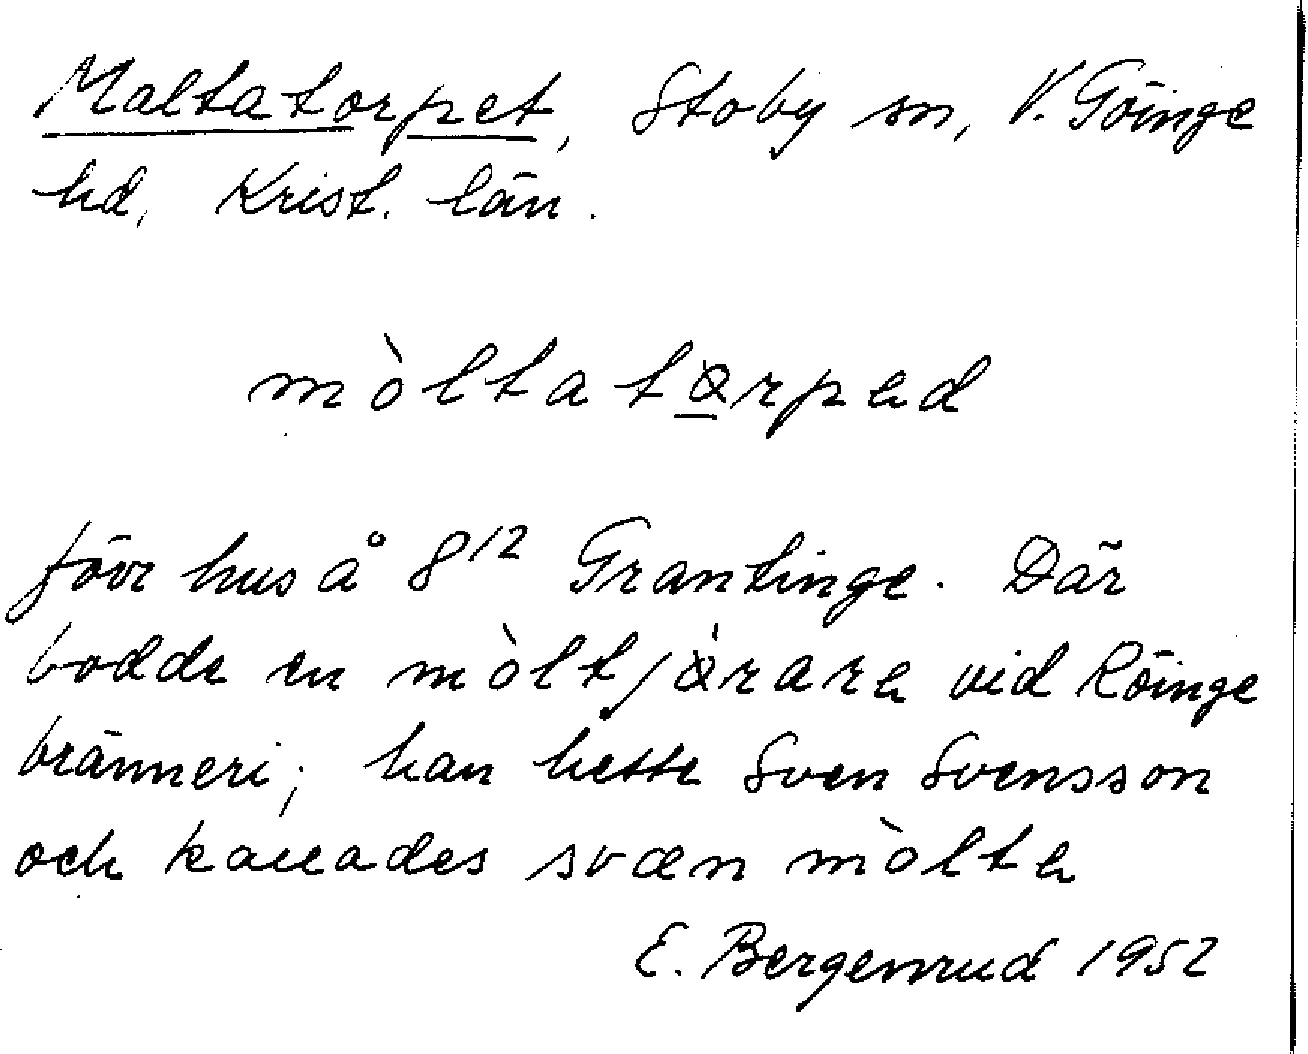 Maltatorpet, Stoby sn, V. Göinge
hd, Krist. län.
mòltatørped
förr hus å 8¹² Grantinge. Där
bodde en mòltjø̀rare vid Röinge
bränneri; han hette Sven Svensson
och kallades svæn mòlte
E. Bergenrud 1952